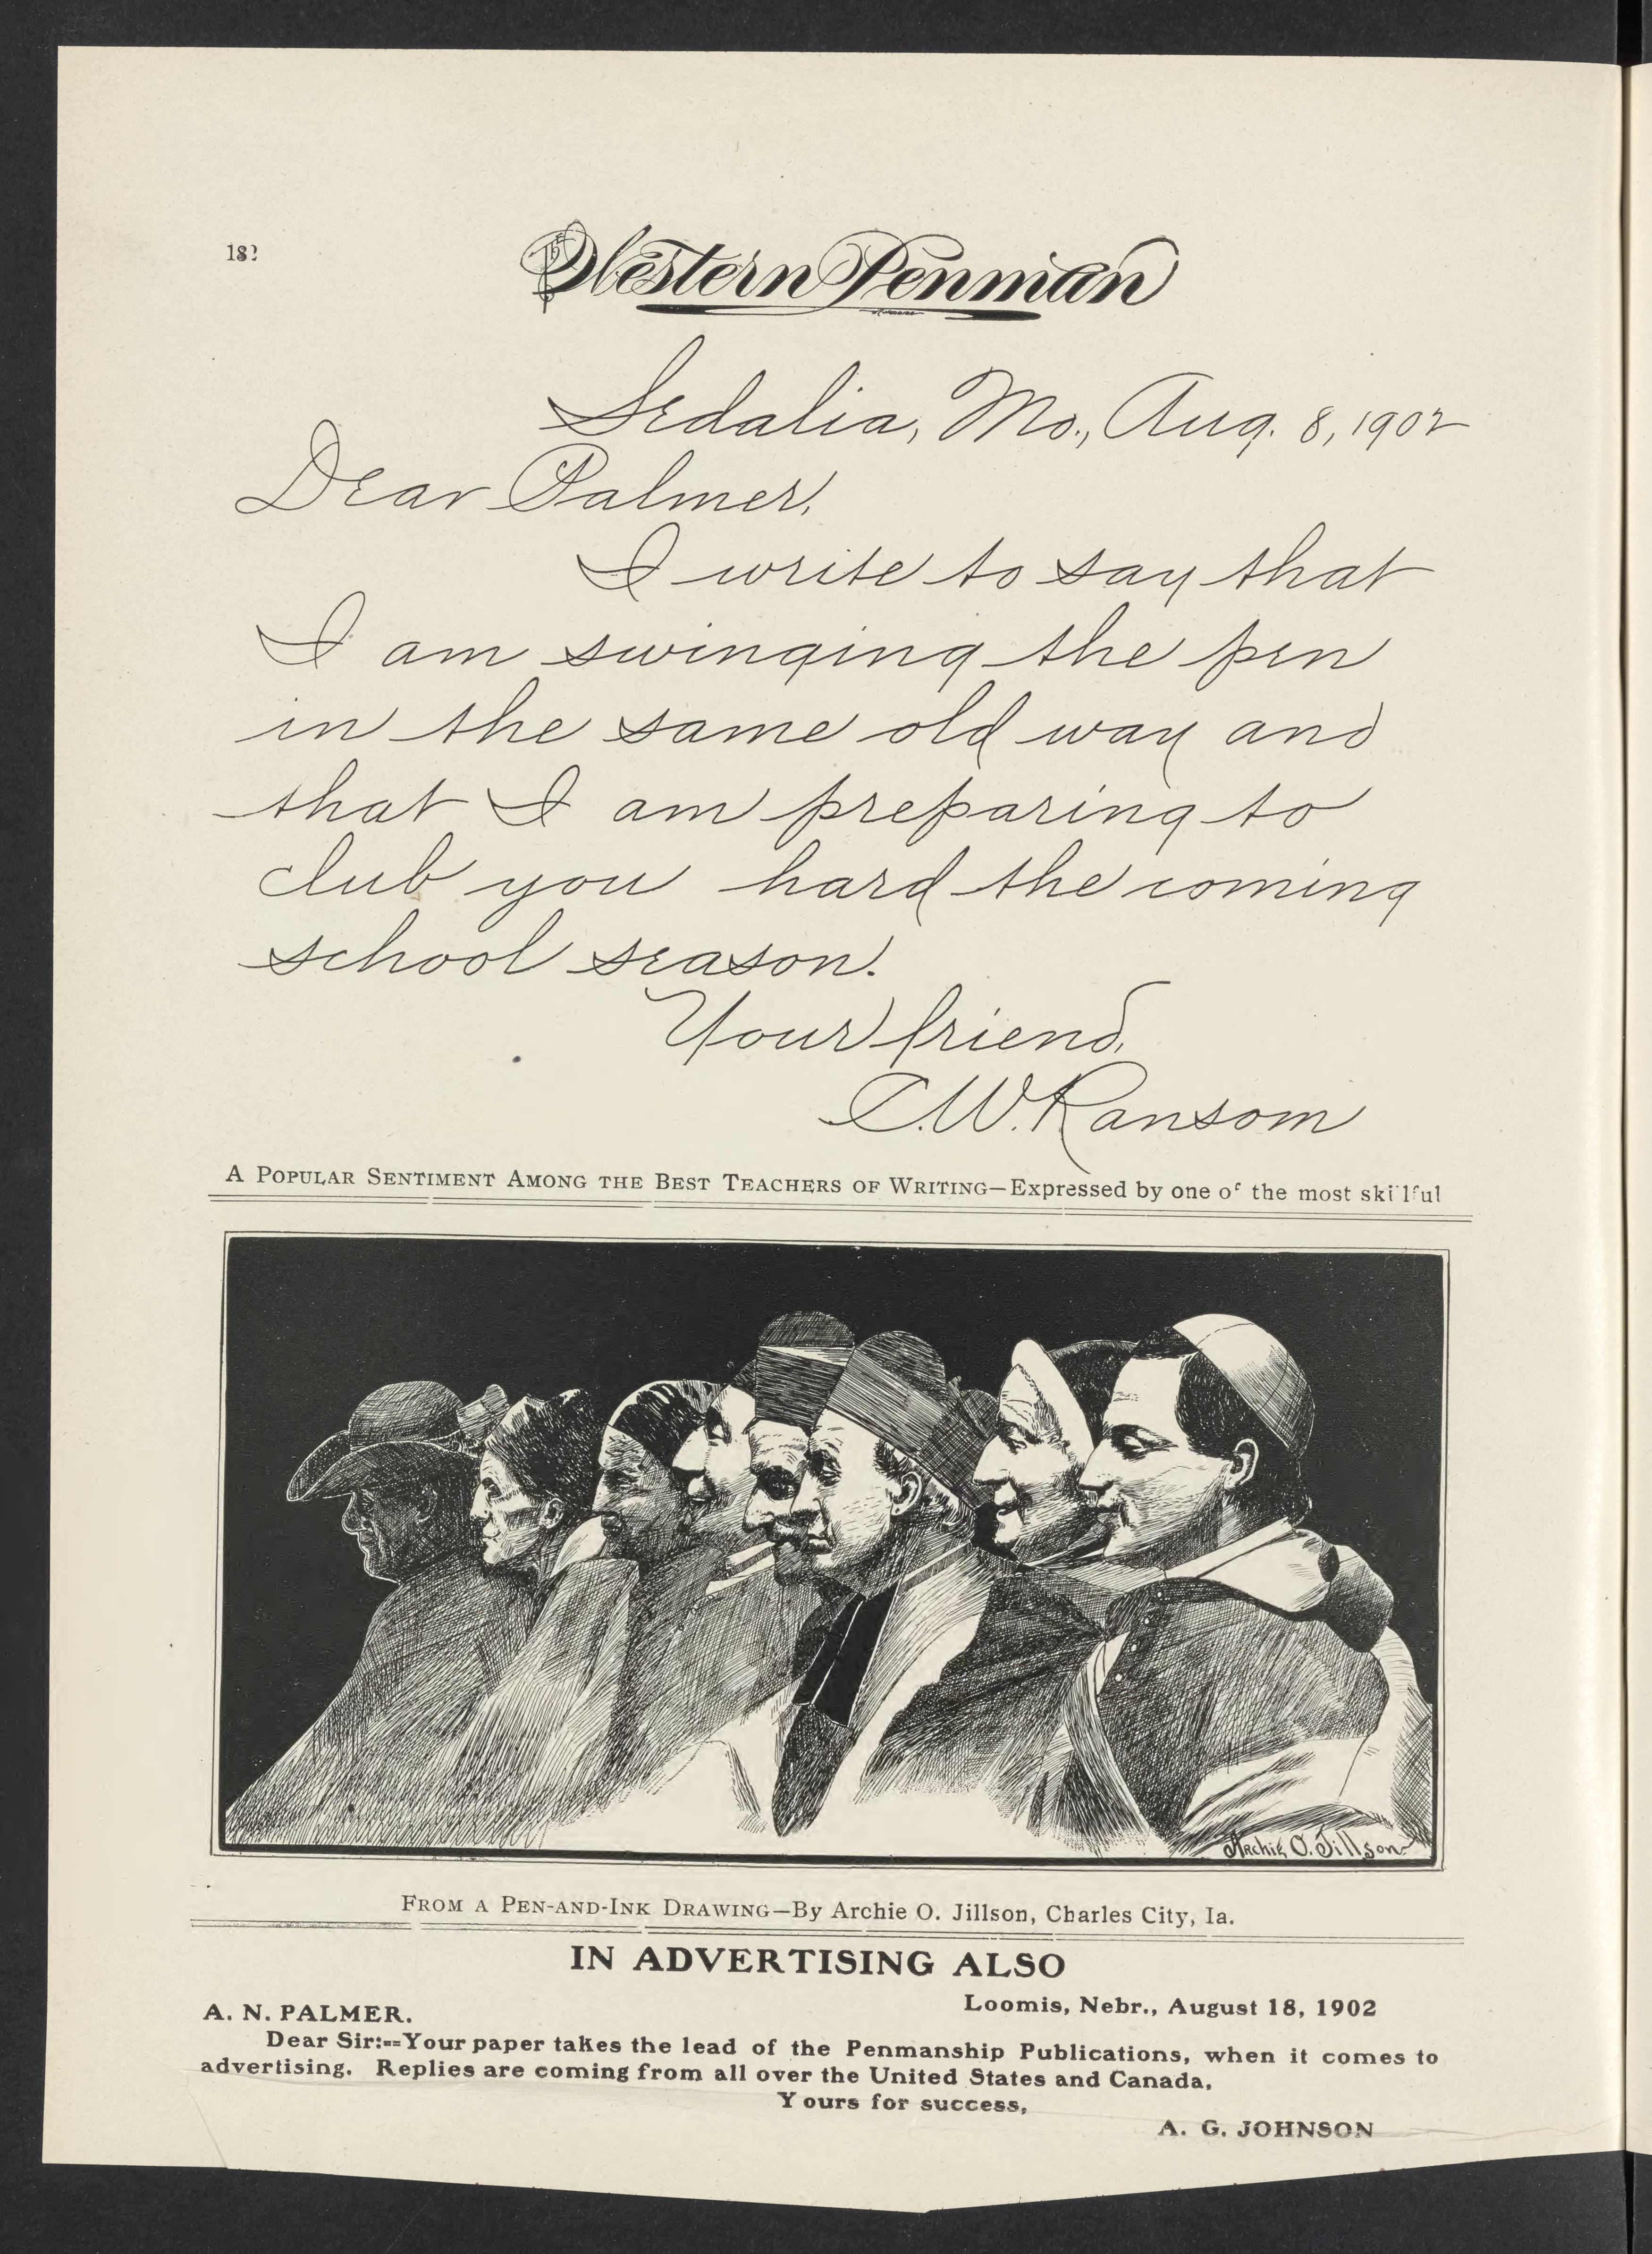 182
The Western Penman
Sedalia, Mo., Aug. 8, 1902
Dear Palmer,
I write to say that
I am swinging the pen
in the same old way and
that I am preparing to
club you hard the coming
school season.
Your friend,
C. W. Ransom
A POPULAR SENTIMENT AMONG THE BEST TEACHERS OF WRITING—Expressed by one of the most skillful
Archie O. Jillson
FROM A PEN-AND-INK DRAWING—By Archie O. Jillson, Charles City, Ia.
IN ADVERTISING ALSO
Loomis, Nebr., August 18, 1902
A. N. PALMER.
Dear Sir:--Your paper takes the lead of the Penmanship Publications, when it comes to
advertising. Replies are coming from all over the United States and Canada,
Yours for success,
A. G. JOHNSON